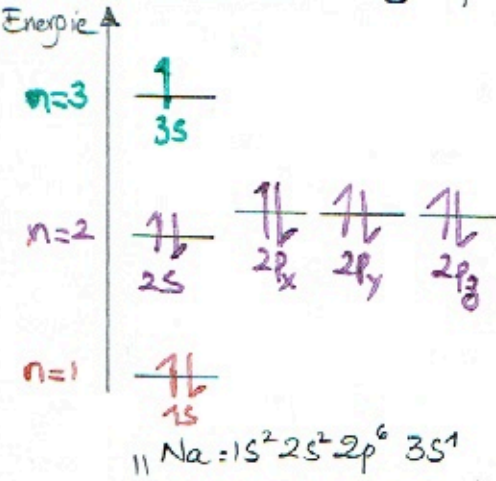 Energie
n=3
3s
n=2
2s 2Px 2Py 2Pz
n=1
1s
₁₁Na : 1s² 2s² 2p⁶ 3s¹